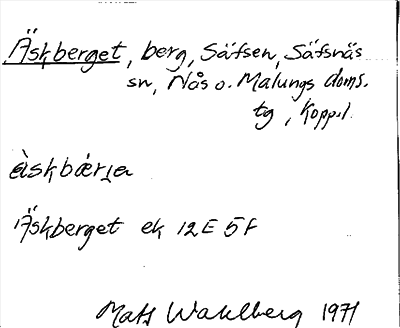 Äskberget, berg, Säfsen, Säfsnäs
sn, Nås o. Malungs doms.
tg, Kopp.l.
àskbærja
Äskberget ek 12E 5f
Mats Wahlberg 1971